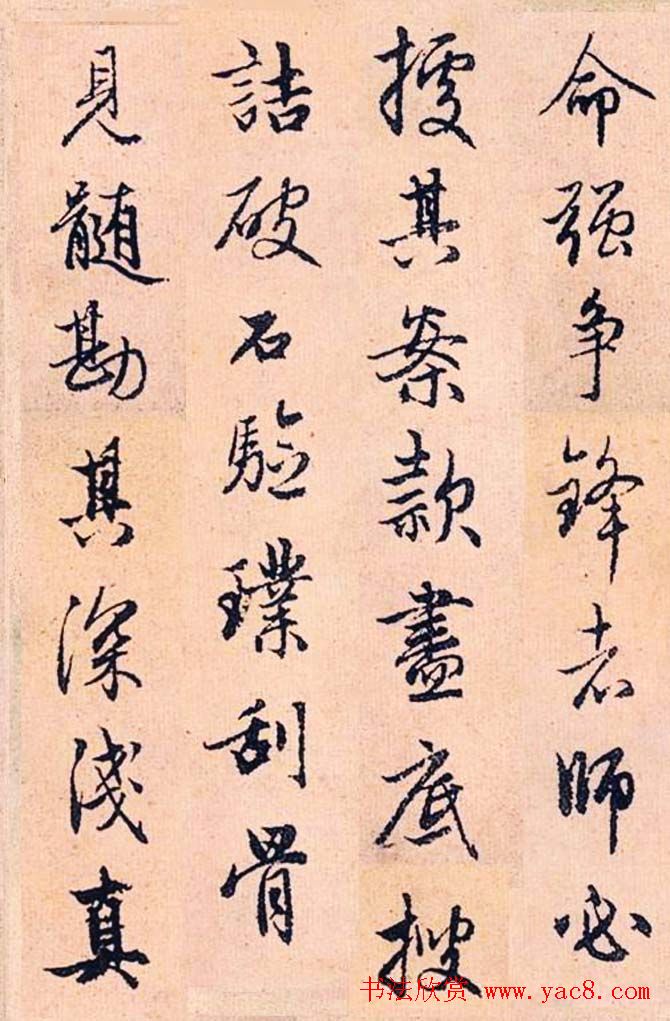 命强争鋒老師必
據其案款盡底搜
詰破石驗璞刮骨
見髓勘其深淺真
书法欣赏 www.yac8.com